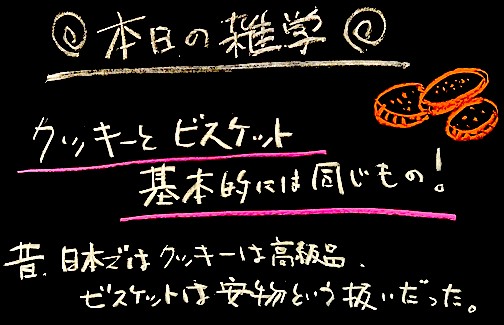 本日の雑学
クッキーと ビスケット
基本的には同じもの!
昔、日本ではクッキーは高級品、
ビスケットは安物という扱いだった。